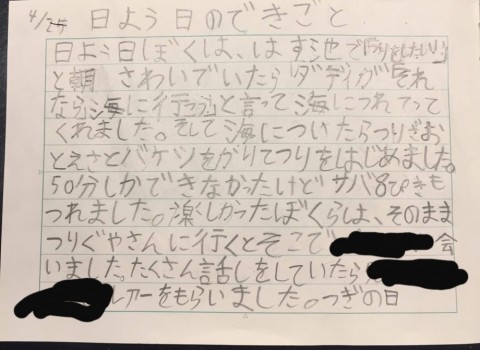 4/25 日よう日のできごと
日よう日ぼくは、はす池でつりをしたい」
と朝 さわいでいたらダディが「それ
なら海に行こう」と言って海につれてって
くれました。そして海についたらつりざお
とえさとバケツをかりてつりをはじめました。
50分しかできなかったけどサバ8ぴきも
つれました。楽しかったぼくらは、そのまま
つりぐやさんに行くとそこで 会
いました。たくさん話しをしていたら
ルアーをもらいました。つぎの日